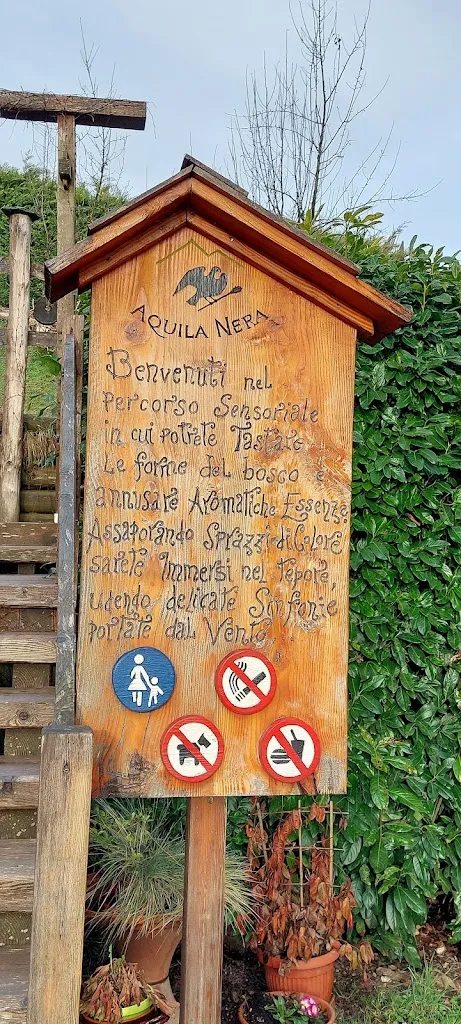 AQUILA NERA
Benvenuti nel
Percorso Sensoriale
in cui potrete Tastare
Le forme del bosco e
annusare Aromatiche Essenze.
Assaporando Sprazzi di Colore
sarete Immersi nel tepore,
udendo delicate Sinfonie
portate dal Vento...